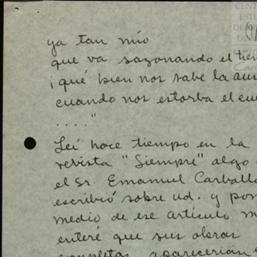 ya tan mío
que va sazonando el tie
¡qué bien nos sabe la au
cuando nos estorba el cue
...."
Leí hace tiempo en la
revista "Siempre" algo
el Sr. Emanuel Carballo
escribió sobre ud. y por
medio de ese artículo m
enteré que sus obras
completas aparecerían